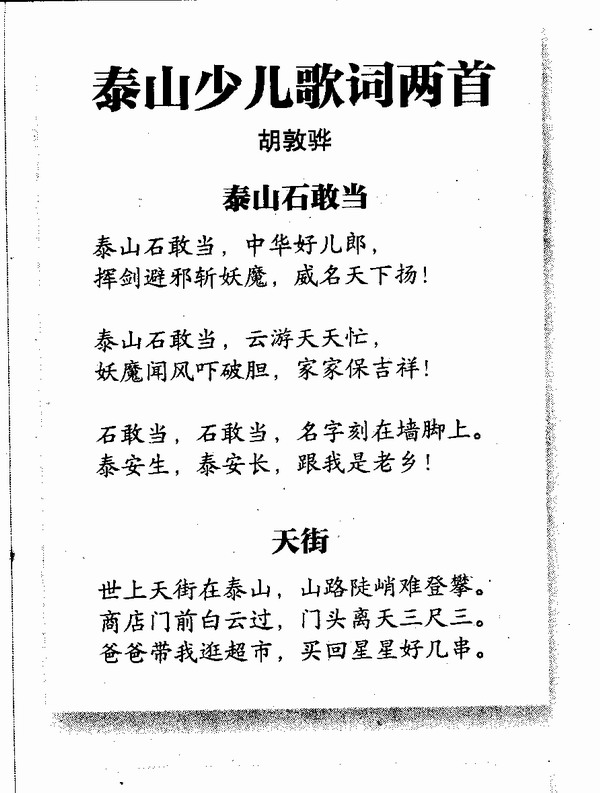 泰山少儿歌词两首
胡敦骅
泰山石敢当
泰山石敢当，中华好儿郎，
挥剑避邪斩妖魔，威名天下扬！
泰山石敢当，云游天天忙，
妖魔闻风吓破胆，家家保吉祥！
石敢当，石敢当，名字刻在墙脚上。
泰安生，泰安长，跟我是老乡！
天街
世上天街在泰山，山路陡峭难登攀。
商店门前白云过，门头离天三尺三。
爸爸带我逛超市，买回星星好几串。